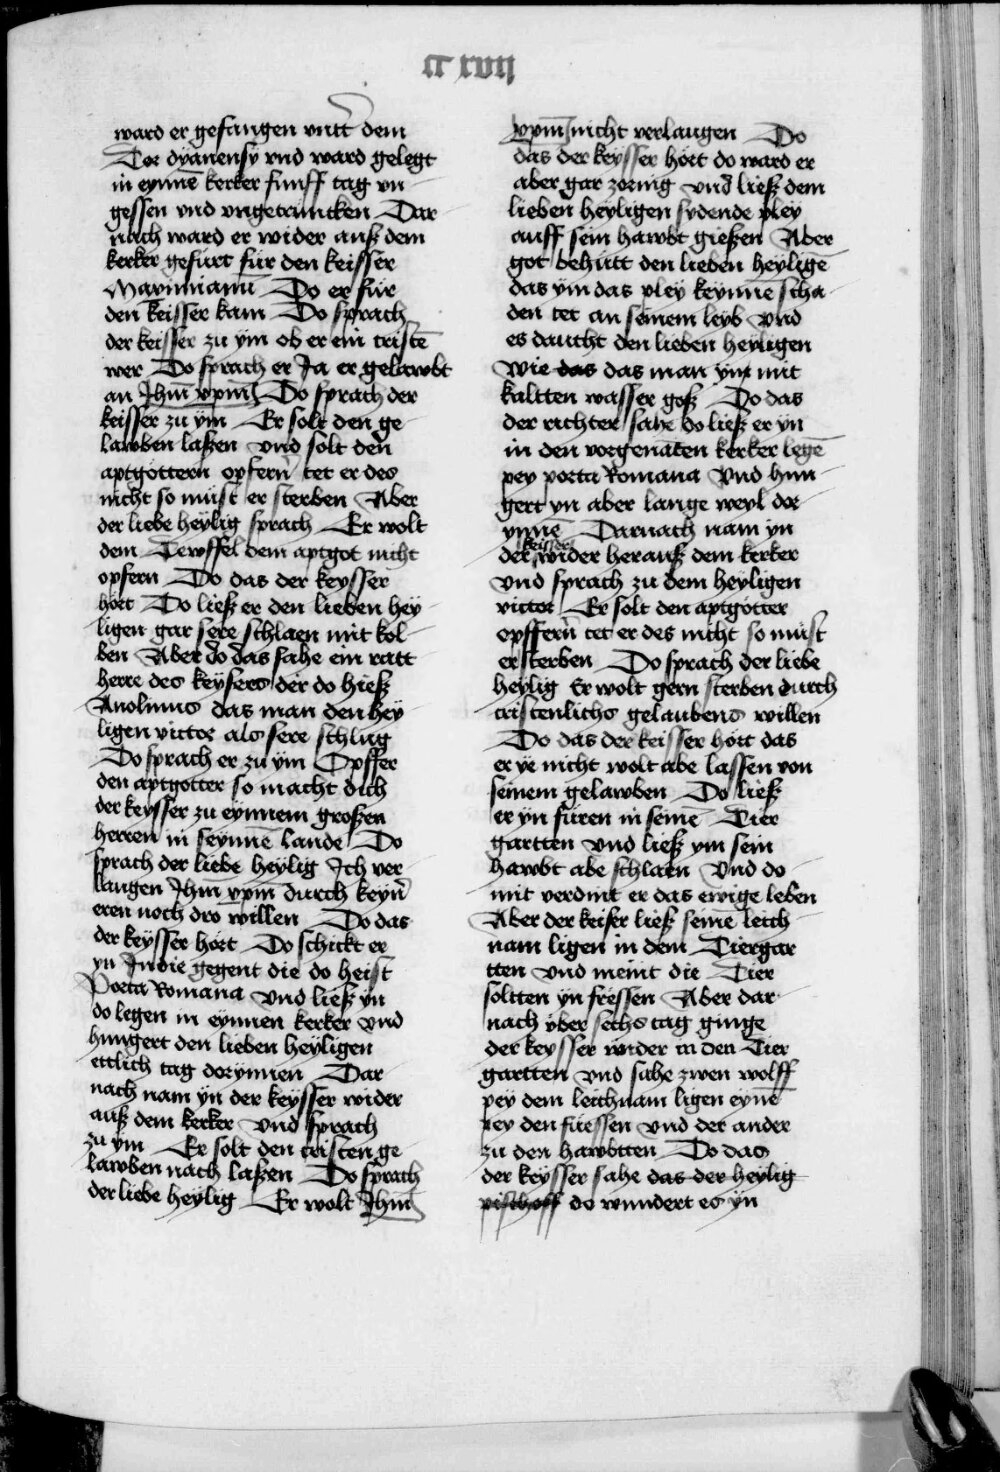 cc xvij
ward er gefangen vntt̄ dem
Tor dyanensy vnd ward gelegt
in eynnē kerker funff tag vn
gessen vnd vngetruncken Dar
nach ward er wider auß dem
kerker gefurt für den keisser
Maximianū Do er für
den keisser kam Do sprach
der keisser zu ym ob er ein cristē
wer Do sprach er Ja er gelawbt
an Jhm̄ xpm̄ Do sprach der
keisser zu ym Er solt den ge
lawben laßen vnd solt den
aptgöttern opfern tet er des
nicht so müst er sterben Aber
der liebe heylig sprach Er wolt
dem Tewffel dem aptgot nicht
opfern Do das der keysser
hort Do ließ er den lieben hey
ligen gar sere schlaen mit kol
ben Aber do das sahe ein ratt
herre des keysers der do hieß
Anolinus das man den hey
ligen victor als sere schlug
Do sprach er zu ym Opffer
den aptgotter so macht dich
der keysser zu eynnem großen
herren in seynnē lande Do
sprach der liebe heylig Ich ver
laugen Jhm̄ xpm̄ durch keyn̄
eren noch dro willen Do das
der keysser hort Do schickt er
yn In die gegent die do heist
Porta Romana vnd ließ yn
do legen in eynnen kerker vnd
hungert den lieben heyligen
ettlich tag dorynnen Dar
nach nam yn der keysser wider
auß dem kerker vnd sprach
zu ym Er solt den cristen ge
lawben nach laßen Do sprach
der liebe heylig Er wolt Jhm̄
xpm̄ nicht verlaugen Do
das der keysser hort do ward er
aber gar zornig vnd ließ dem
lieben heyligen sydende pley
auff sein hawbt gießen Aber
got behutt den lieben heyligē
das ym das pley keynnē scha
den tet an seinem leyb vnd
es daucht den lieben heyligen
wie das das man ym mit
kaltten wasser goß Do das
der richter sahe do ließ er yn
in den vorgenāten kerker legē
pey porta Romana vnd hun
gert yn aber lange weyl dor
ynnē Darnach nam yn
der keisser wider herauß dem kerker
vnd sprach zu dem heyligen
victor Er solt den aptgötter
opffern tet er des nicht so müst
er sterben Do sprach der liebe
heylig Er wolt gern sterben durch
cristenlichs gelaubens willen
Do das der keisser hört das
er ye nicht wolt abe lassen von
seinem gelawben Do ließ
er yn füren in seinē Tier
gartten vnd ließ ym sein
hawbt abe schlaen vnd do
mit verdint er das ewige leben
Aber der keiser ließ seinē leich
nam ligen in dem Tiergar
tten vnd meint die Tier
soltten yn fressen Aber dar
nach yber sechs tag ginge
der keysser wider in den Tier
gartten vnd sahe zwen wolff
pey dem leichnam ligen eynē
pey den füessen vnd der ander
zu den hawbtten Do das
der keysser sahe das der heylig
pischoff do wundert es yn